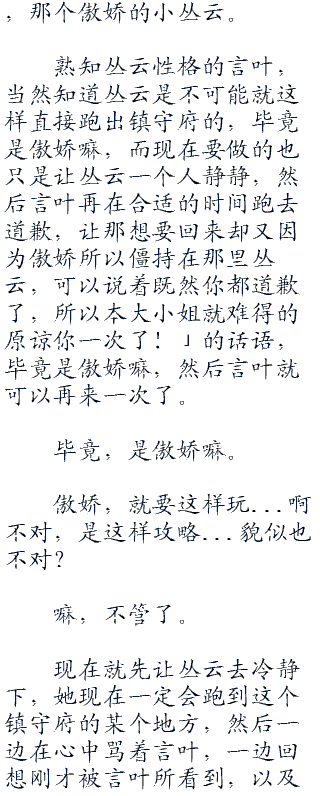 ，那个傲娇的小丛云。
熟知丛云性格的言叶，
当然知道丛云是不可能就这
样直接跑出镇守府的，毕竟
是傲娇嘛，而现在要做的也
只是让丛云一个人静静，然
后言叶再在合适的时间跑去
道歉，让那想要回来却又因
为傲娇所以僵持在那里丛
云，可以说着既然你都道歉
了，所以本大小姐就难得的
原谅你一次了！」的话语，
毕竟是傲娇嘛，然后言叶就
可以再来一次了。
毕竟，是傲娇嘛。
傲娇，就要这样玩...啊
不对，是这样攻略...貌似也
不对？
嘛，不管了。
现在就先让丛云去冷静
下，她现在一定会跑到这个
镇守府的某个地方，然后一
边在心中骂着言叶，一边回
想刚才被言叶所看到，以及